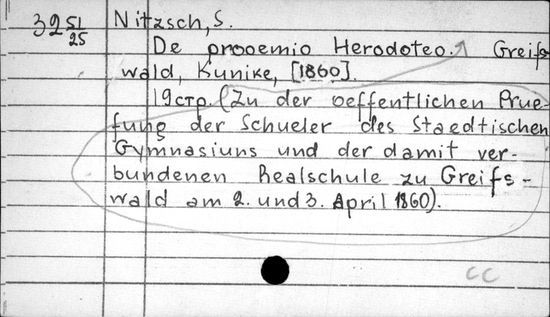 32 51/25 Nitzsch, S.
De prooemio Herodoteo. Greifs
wald, Kunike, [1860].
19 стр. (Zu der oeffentlichen Prue-
fung der Schueler des Staedtischen
Gymnasiuns und der damit ver-
bundenen Realschule zu Greifs-
wald am 2. und 3. April 1860).
CC